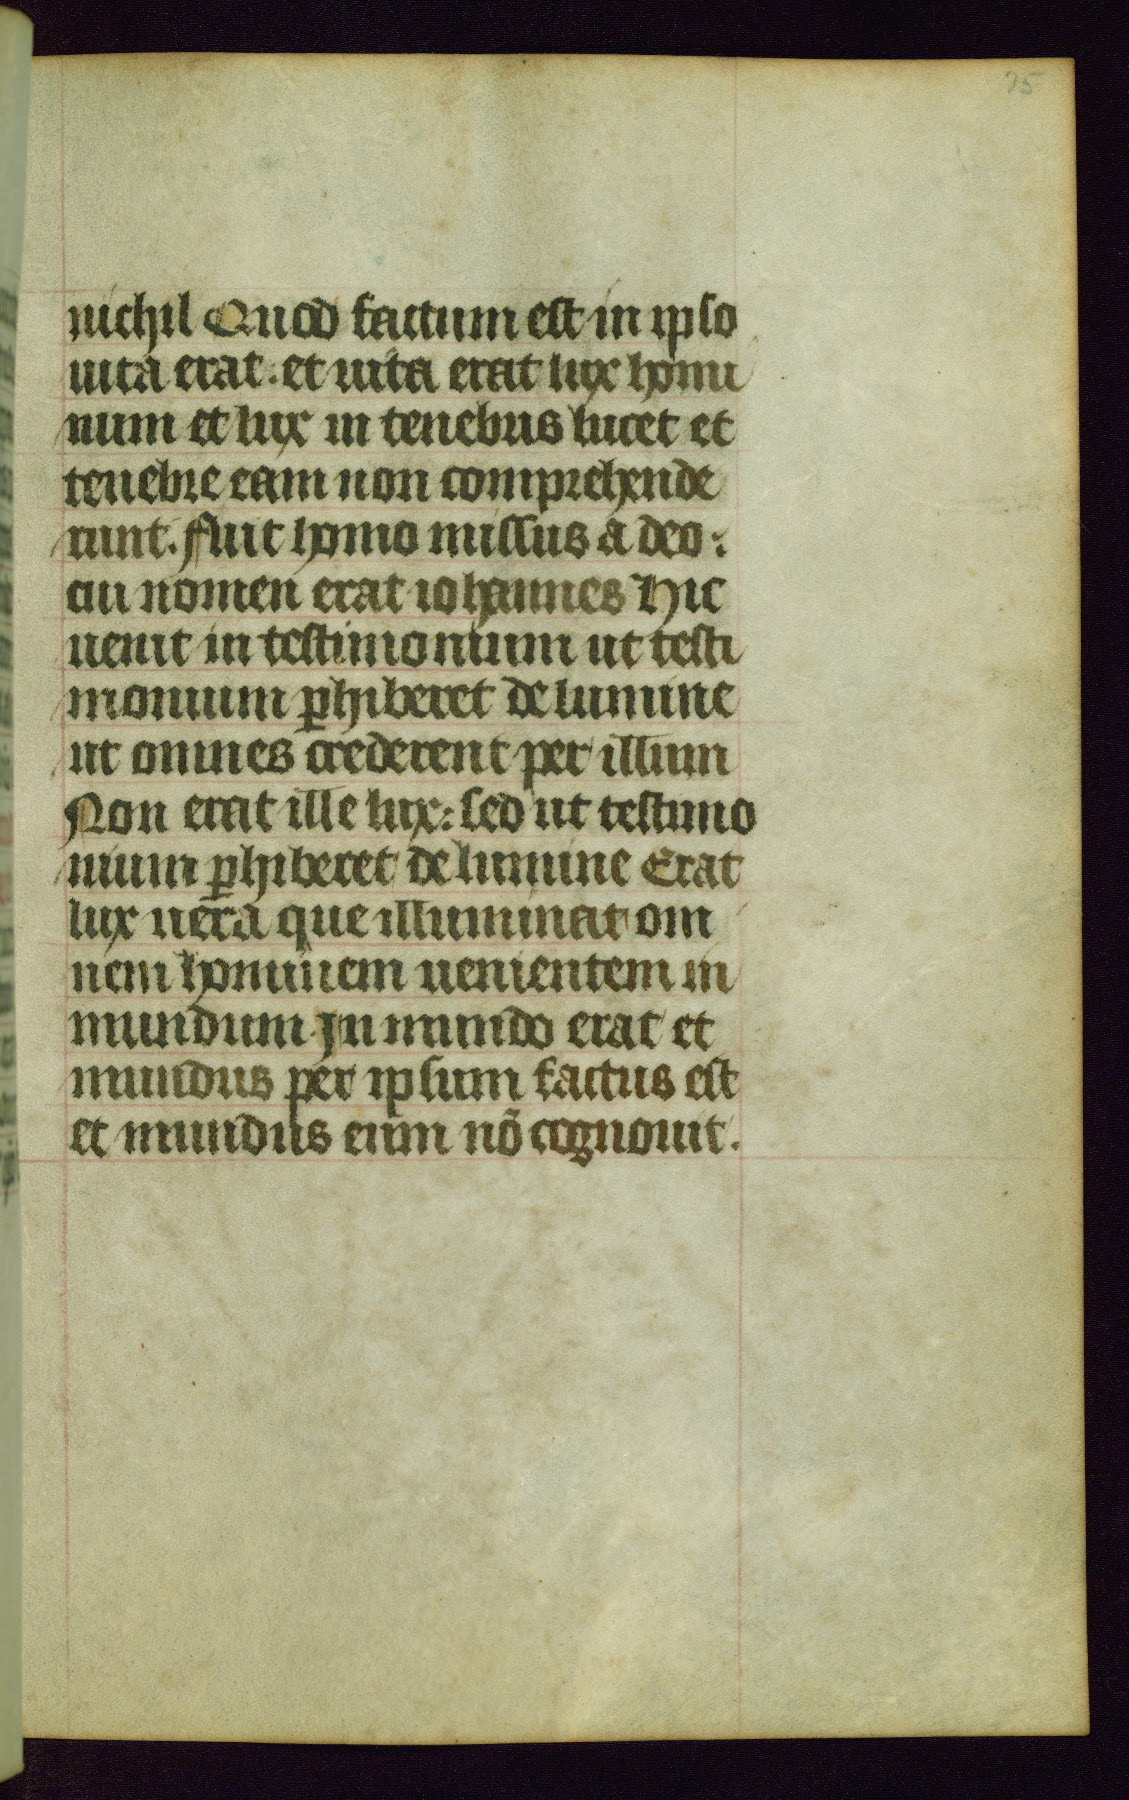 25
nichil Quod factum est in ipso
uita erat. et uita erat lux homi
num et lux in tenebris lucet et
tenebre eam non comprehende
runt. fuit homo missus a deo:
cui nomen erat iohannes Hic
uenit in testimonium ut testi
monium ꝑhiberet de lumine
ut omnes crederent per illum
Non erat ille lux: sed ut testimo
nium ꝑhiberet de lumine Erat
lux uera que illuminat om
nem hominem uenientem in
mundum In mundo erat et
mundus per ipsum factus est
et mundus eum nō cognouit.